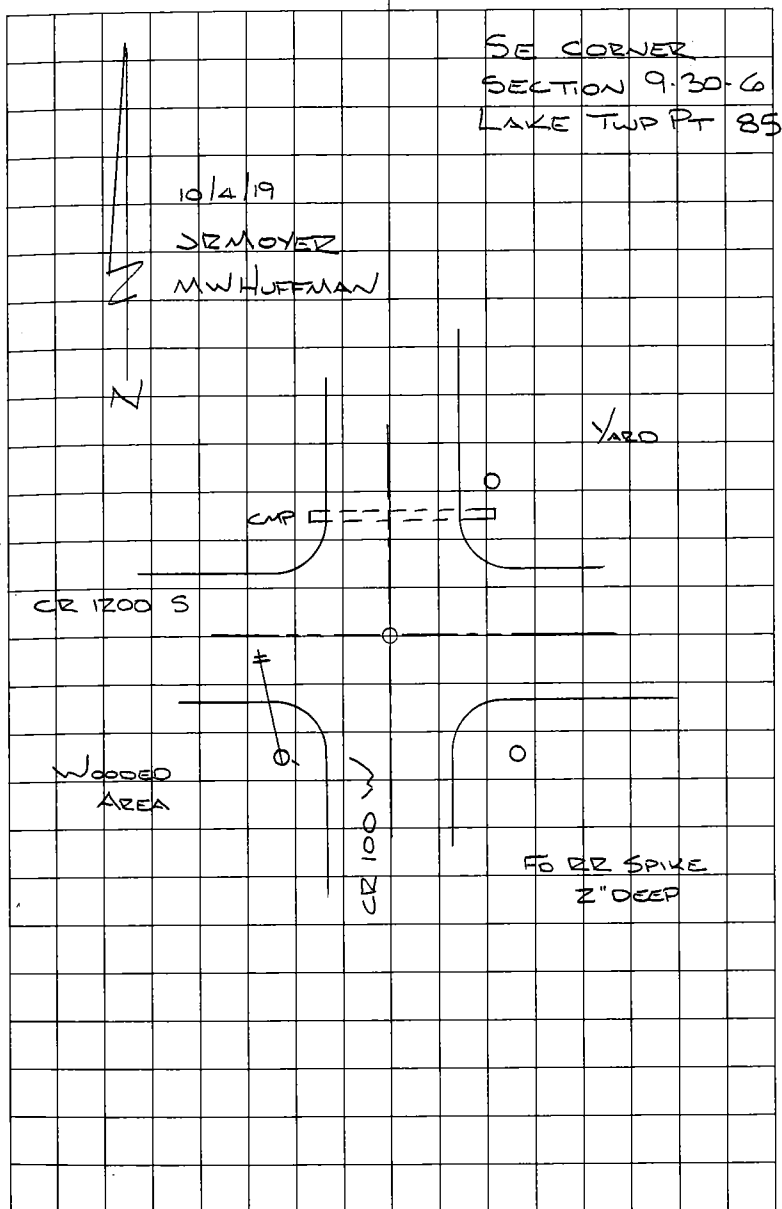 SE CORNER
SECTION 9-30-6
LAKE TWP PT 85
10/4/19
JRMOYER
MWHUFFMAN
N
YARD
CMP
CR 1200 S
WOODED
AREA
CR 100 W
FD RR SPIKE
2" DEEP